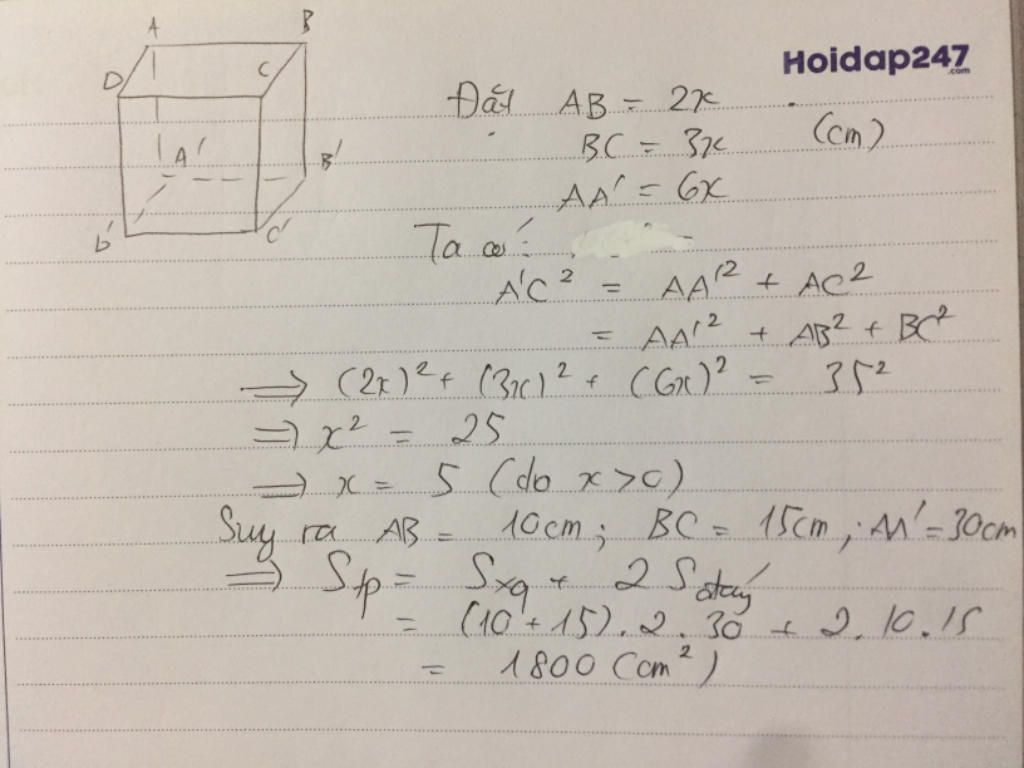 A B
D C
A' B'
D' C'
Hoidap247
.com
Đặt AB = 2x
BC = 3x (cm)
AA' = 6x
Ta có:
A'C² = AA'² + AC²
= AA'² + AB² + BC²
⇒ (2x)² + (3x)² + (6x)² = 35²
⇒ x² = 25
⇒ x = 5 (do x>0)
Suy ra AB = 10cm; BC = 15cm; AA' = 30cm
⇒ Stp = Sxq + 2 Sđáy
= (10 + 15).2.30 + 2.10.15
= 1800 (cm²)